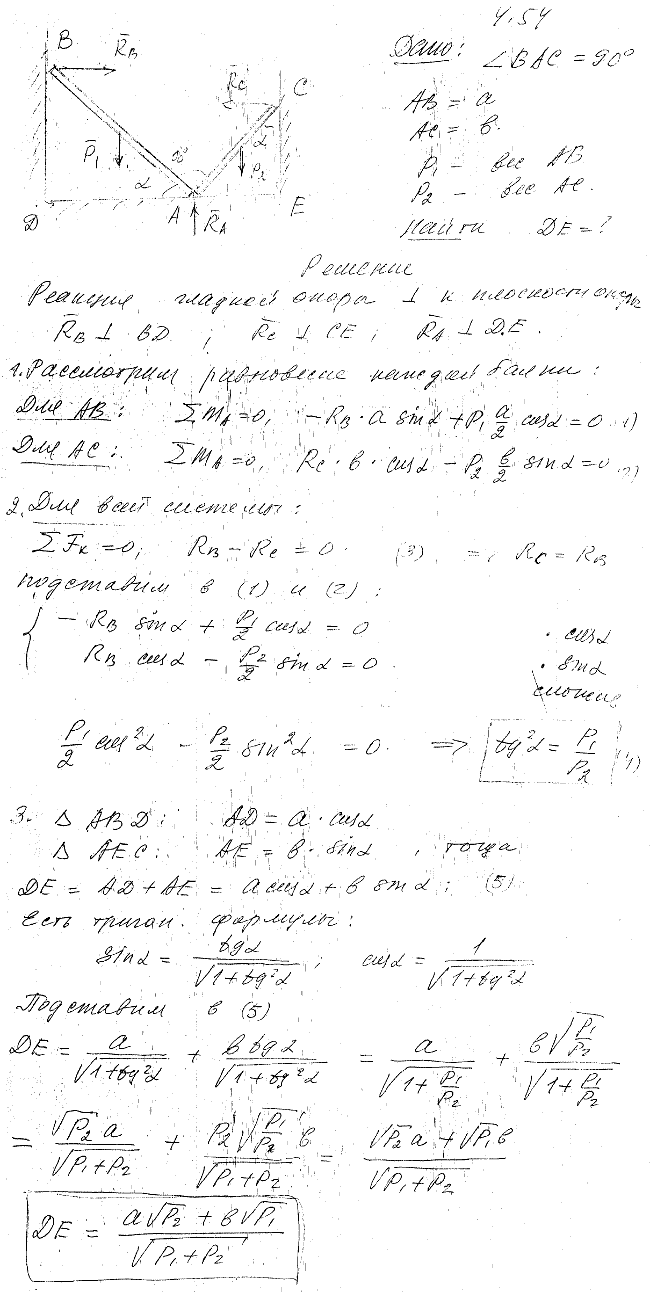 4.54
Дано: ∠BAC = 90°
AB = a
AC = в.
P₁ – вес AB
P₂ – вес AC.
Найти DE = ?
B R̄_B
R_C C
P̄₁ 90° α P₂
α
D A R̄_A E
Решение
Реакция гладкой опоры ⊥ к плоскости опоры
R̄_B ⊥ BD ; R̄_C ⊥ CE ; R̄_A ⊥ DE.
1. Рассмотрим равновесие каждой балки:
Для AB: ΣM_A = 0, −R_B · a sinα + P₁ a/2 cosα = 0 1)
Для AC: ΣM_A = 0, R_C · в · cosα − P₂ в/2 sinα = 0 2)
2. Для всей системы:
ΣF_K = 0; R_B − R_C = 0. (3) =, R_C = R_B
подставим в (1) и (2):
{ − R_B sinα + P₁/2 cosα = 0 · cosα
R_B cosα − P₂/2 sinα = 0. · sinα
сложив
P₁/2 cos²α − P₂/2 sin²α = 0. => tg²α = P₁/P₂ (4)
3. Δ ABD: AD = a · cosα
Δ AEC: AE = в · sinα , тогда
DE = AD + AE = a cosα + в sinα; (5)
Есть тригон. формулы:
sinα = tgα/√(1+tg²α) ; cosα = 1/√(1+tg²α)
Подставим в (5)
DE = a/√(1+tg²α) + в tgα/√(1+tg²α) = a/√(1+P₁/P₂) + в√(P₁/P₂)/√(1+P₁/P₂)
= √P₂ a/√(P₁+P₂) + P₂√(P₁/P₂) в/√(P₁+P₂) = (√P₂ a + √P₁ в)/√(P₁+P₂)
DE = (a√P₂ + в√P₁)/√(P₁+P₂)